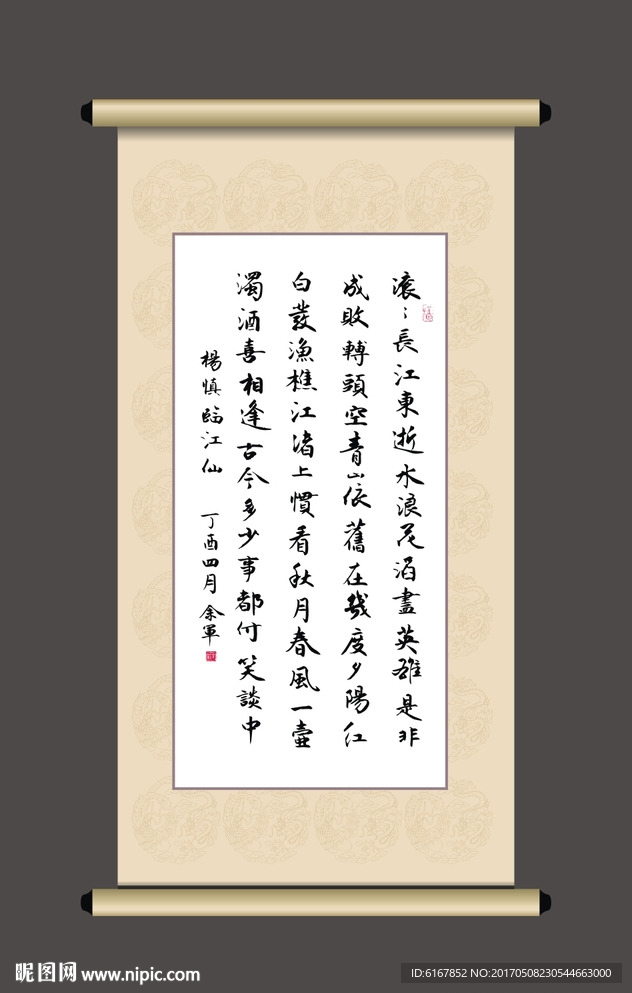 滚〻長江東逝水浪花滔盡英雄是非
成敗轉頭空青山依舊在幾度夕陽紅
白發漁樵江渚上慣看秋月春風一壺
濁酒喜相逢古今多少事都付笑談中
楊慎臨江仙 丁酉四月余軍
昵图网 www.nipic.com
ID:6167852 NO:20170508230544663000